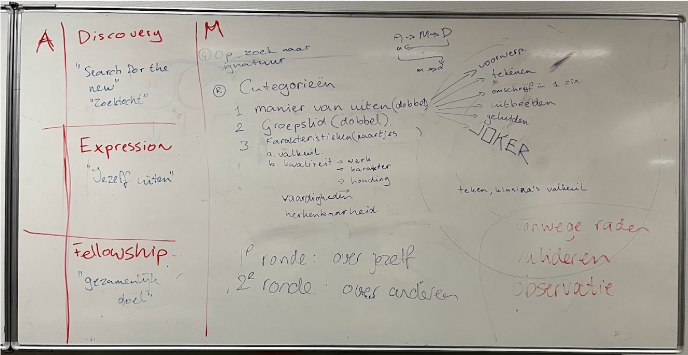 A
Discovery
"Search for the
new"
"Zoektocht"
Expression
"Jezelf uiten"
Fellowship
"gezamenlijk
doel"
M
Op zoek naar
signatuur
A → M → D
® Categorieën
1 manier van uiten (dobbel)
2 Groepslid (dobbel)
3. Karakteristieken (kaartjes)
a. valkuil
b. kwaliteit → werk
→ karakter
→ houding
vaardigheden
herkenbaarheid
voorwerp
tekenen
omschrijf in 1 zin
uitbeelden
geluiden
JOKER
teken, valkuil
1e ronde: over jezelf
2e ronde: over anderen
vanwege raden
observatie